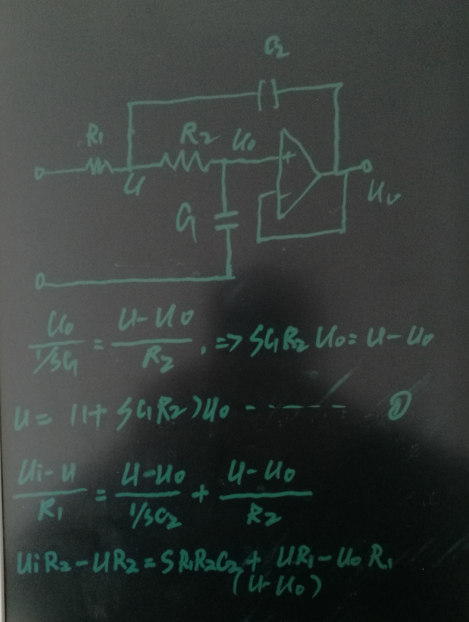 C₂
R₁ R₂ U₀
U
C₁ U₀
U₀/(1/SC₁) = (U-U₀)/R₂ . => SC₁R₂U₀ = U-U₀
U = (1+SC₁R₂)U₀ ------- ①
(Ui-U)/R₁ = (U-U₀)/(1/SC₂) + (U-U₀)/R₂
UiR₂-UR₂ = SR₁R₂C₂ + UR₁-U₀R₁
(U-U₀)